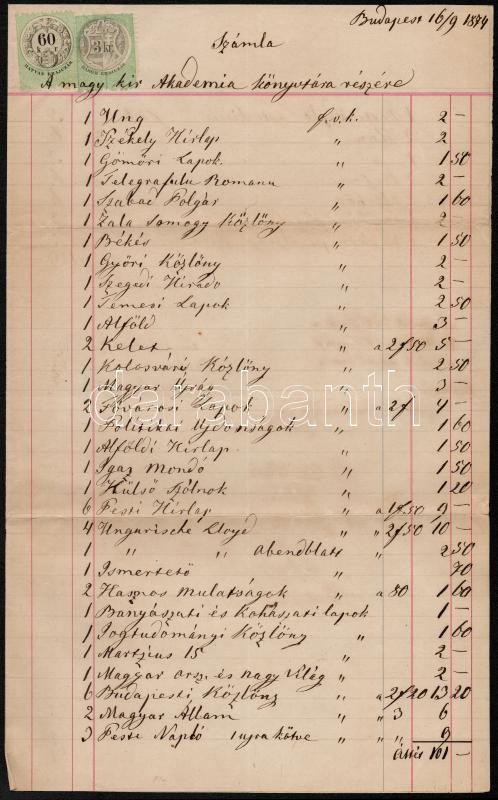 Budapest 16/9 1874
60 kr
3 kr
Számla
A magy kir Akademia könyvtára részére
1 Ung f.v.k. 2 –
1 Székely Hirlap " 2 –
1 Gömöri Lapok. " 1 50
1 Telegrafulu Romanu " 2 –
1 Szabad Polgár " 1 60
1 Zala Somogy Közlöny " 2 –
1 Békés " 1 50
1 Györi Közlöny " 2 –
1 Szegedi Hirado " 2 –
1 Temesi Lapok " 2 50
1 Alföld " 3 –
2 Kelet " a 2f50 5 –
1 Kolosvári Közlöny " 2 50
1 Magyar Ujság " 3 –
2 Fővárosi Lapok " a 2f 4 –
darabanth
1 Politikai Ujdonságok " 1 60
1 Alföldi Hirlap. " 1 50
1 Igaz mondó " 1 50
1 Külső Szolnok " 1 20
6 Pesti Hirlap " a 1f50 9 –
4 Ungarische Lloyd " " 2f50 10 –
1 " " Abendblatt " 2 50
1 Ismertető " 70
2 Hasznos mulatságok " a 80 1 60
1 Bányászati és Kohászati lapok 1 –
1 Jogtudományi Közlöny " 1 60
1 Martzius 15 " 2 –
1 Magyar orsz. és nagy Világ " 2 –
6 Budapesti Közlöny " a 2f20 13 20
2 Magyar Állam " " 3 6
3 Pesti Napló ujra kötve " " " 9
101 –